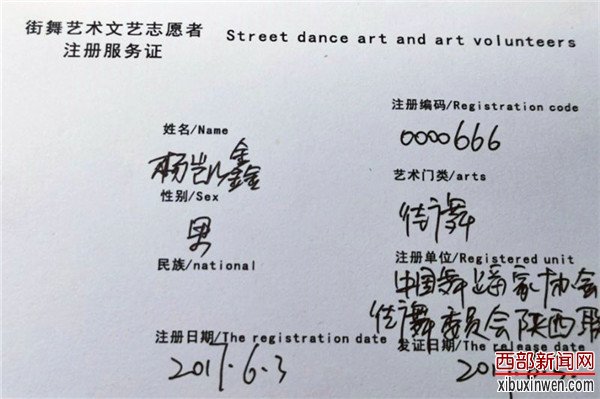 街舞艺术文艺志愿者 Street dance art and art volunteers
注册服务证
注册编码/Registration code
0000666
姓名/Name
杨凯鑫
艺术门类/arts
街舞
性别/Sex
男
注册单位/Registered unit
中国舞蹈家协会
街舞委员会陕西联
民族/national
注册日期/The registration date
2017.6.3
发证日期/The release date
西部新闻网
xibuxinwen.com